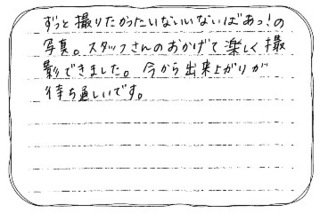 ずっと撮りたかったいないいないばあっ!の
写真。スタッフさんのおかげで楽しく撮
影できました。今から出来上がりが
待ち遠しいです。